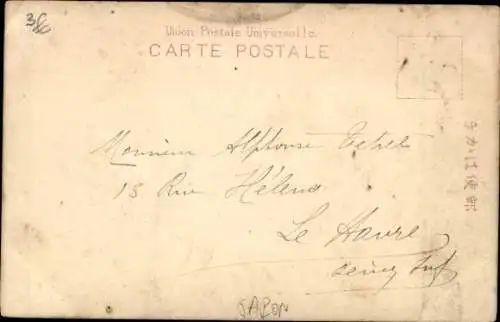 380
Union Postale Universelle.
CARTE POSTALE
きかは便郵
Monsieur Alphonse
18 Rue Hélène
Le Havre
Seine Inf
JAPON